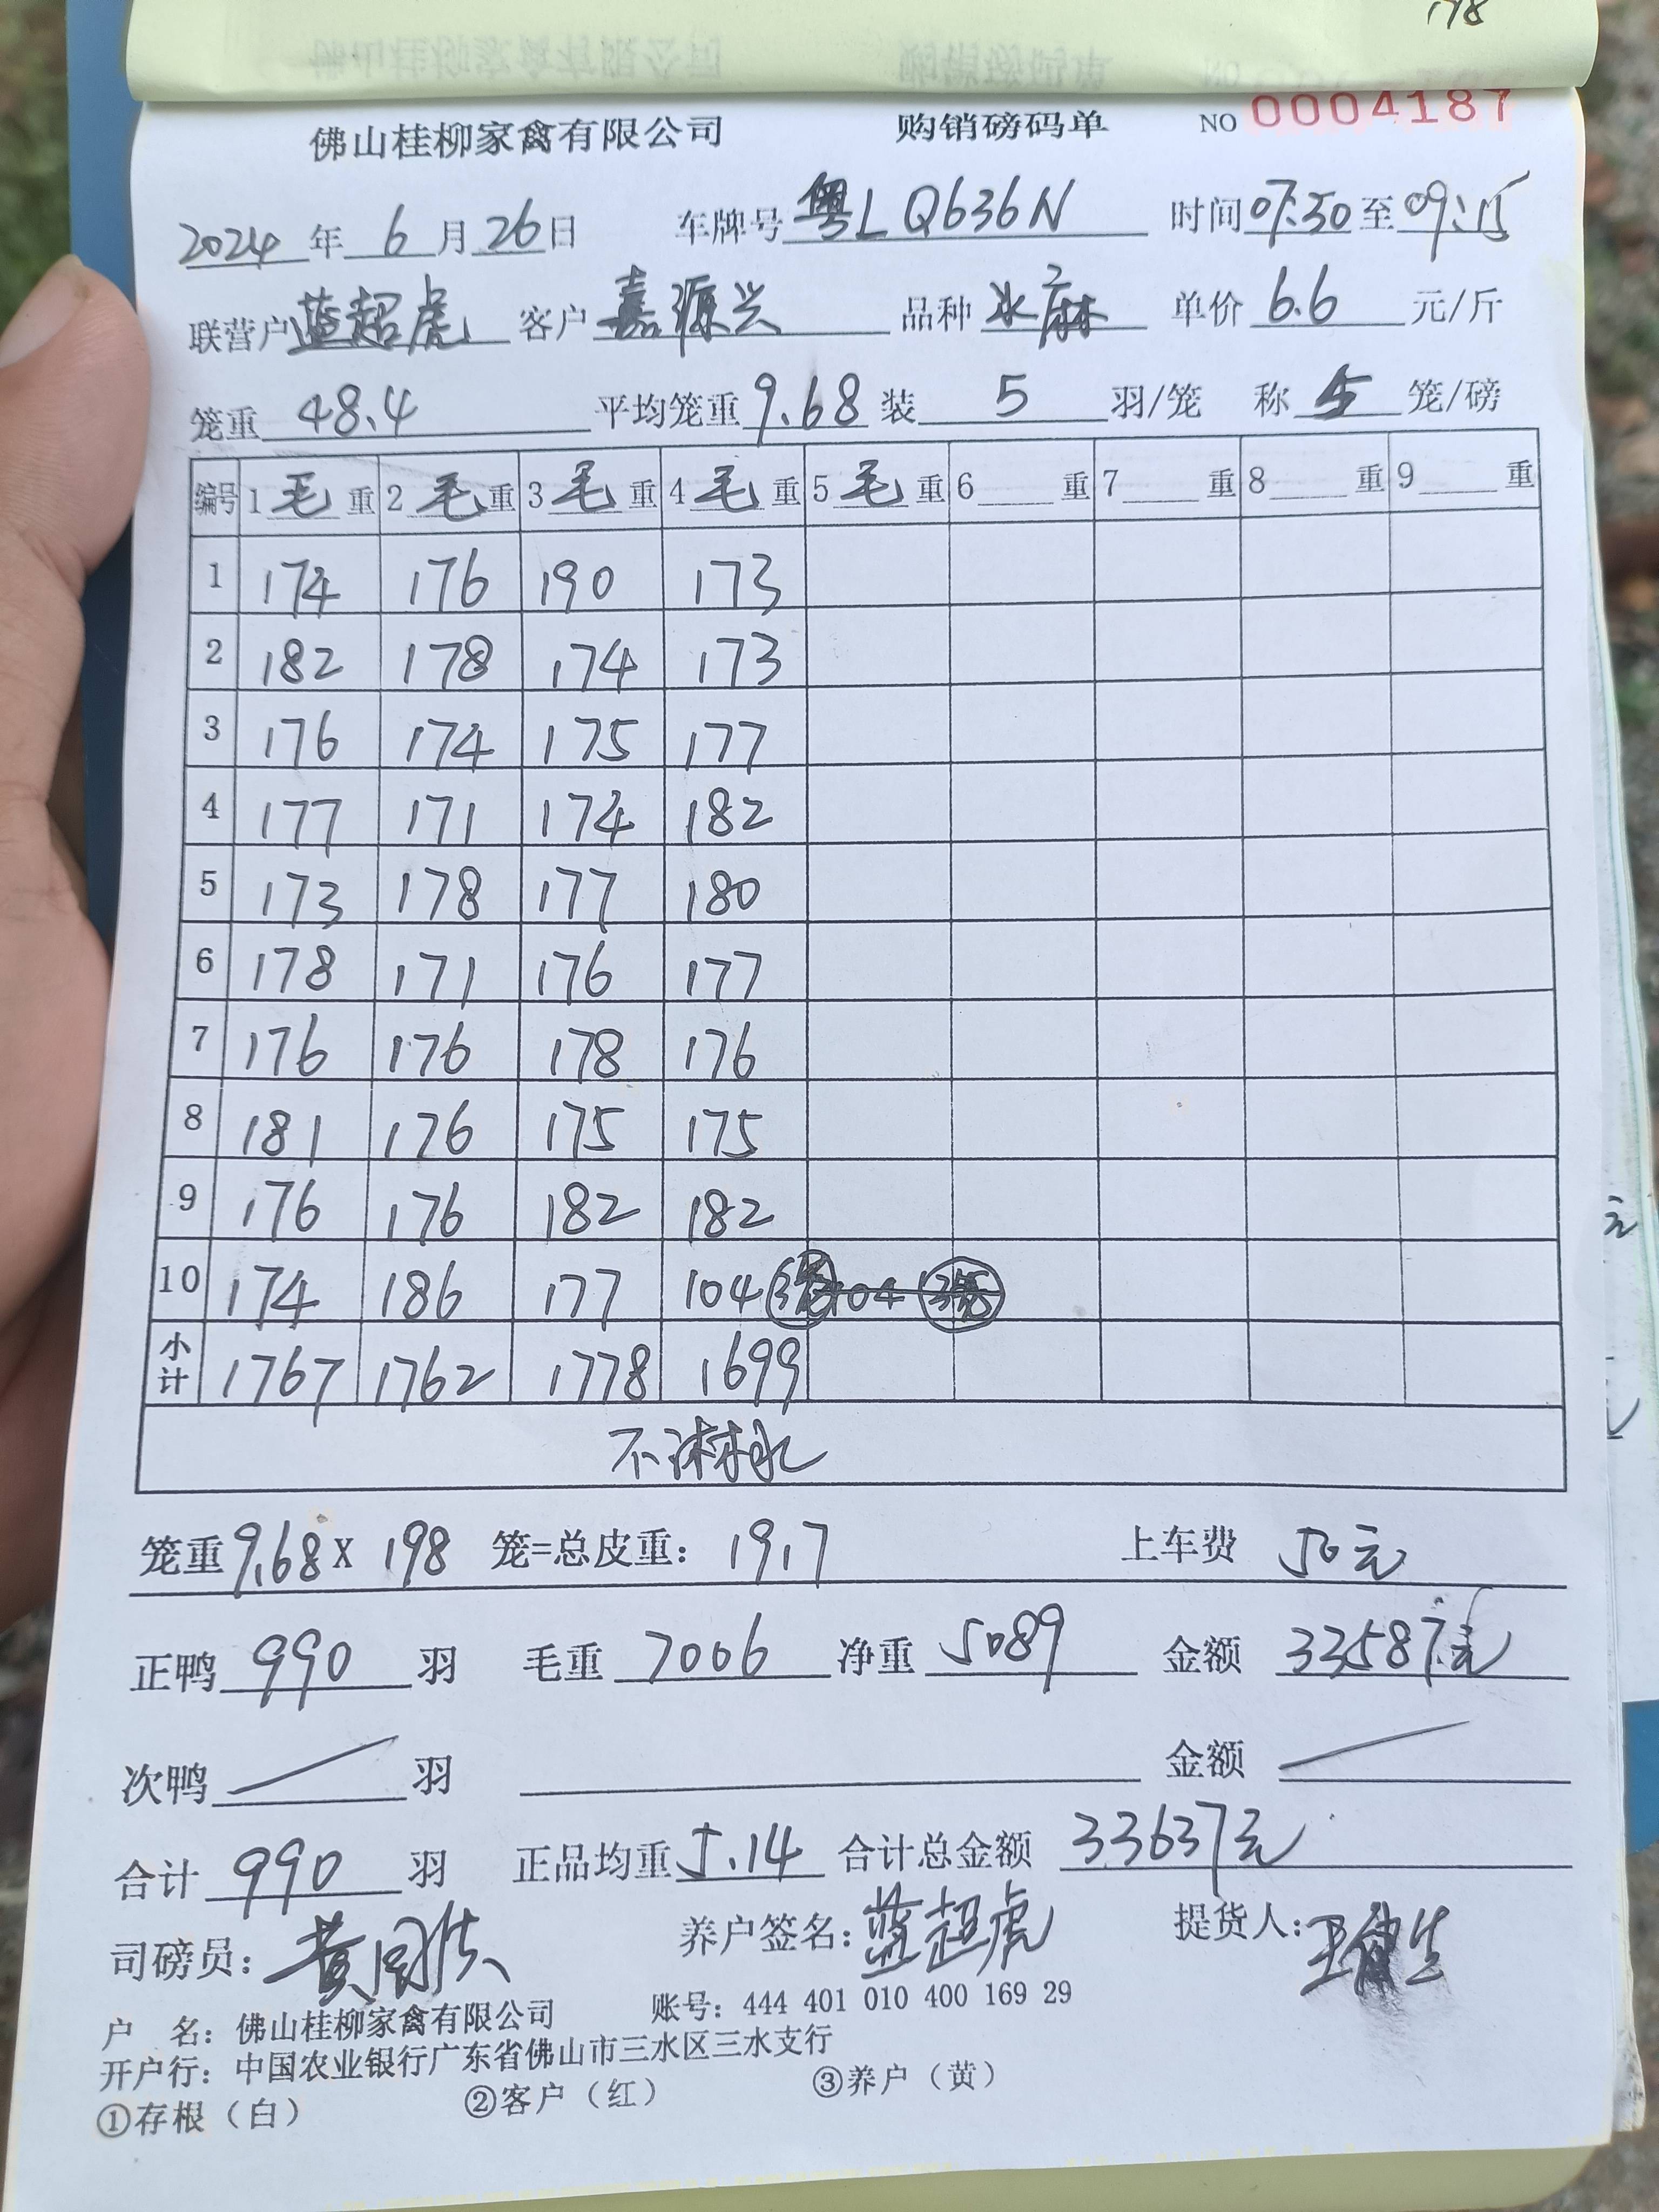 178
佛山桂柳家禽有限公司 购销磅码单 NO 0004187
2024年 6月26日 车牌号 粤L Q636N 时间07:50至09:15
联营户 蓝超虎 客户 嘉源兴 品种 水麻 单价 6.6 元/斤
笼重 48.4 平均笼重 9.68 装 5 羽/笼 称 5 笼/磅
编号 1毛重 2毛重 3毛重 4毛重 5毛重 6重 7重 8重 9重
1 174 176 190 173
2 182 178 174 173
3 176 174 175 177
4 177 171 174 182
5 173 178 177 180
6 178 171 176 177
7 176 176 178 176
8 181 176 175 175
9 176 176 182 182
10 174 186 177 104 104
小计 1767 1762 1778 1699
不淋水
笼重9.68X 198 笼=总皮重: 1917 上车费 50元
正鸭 990 羽 毛重 7006 净重 5089 金额 33587元
次鸭 羽 金额
合计 990 羽 正品均重 5.14 合计总金额 33637元
司磅员: 黄 养户签名: 蓝超虎 提货人: 王 生
户 名: 佛山桂柳家禽有限公司 账号: 444 401 010 400 169 29
开户行: 中国农业银行广东省佛山市三水区三水支行
①存根(白) ②客户(红) ③养户(黄)